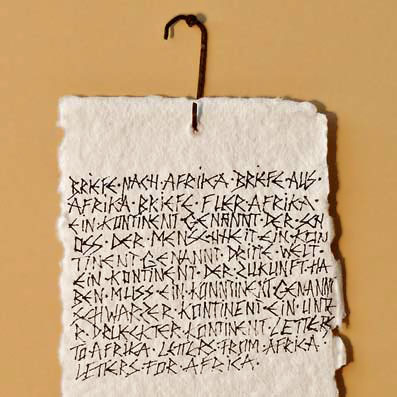 BRIEFE·NACH·AFRIKA·BRIEFE·AUS·
AFRIKA·BRIEFE·FUER·AFRIKA·
EIN·KONTINENT·GENANNT·DER·SCH
OSS·DER·MENSCHHEIT·EIN·KON
TINENT·GENANNT·DRITE·WELT·
EIN·KONTINENT·DER·ZUKUNFT·HA
BEN·MUSS·EIN·KONNTINENT·GENANN
SCHWARZER·KONTINENT·EIN·UNTE
R·DRUECKTER·KONTINENT·LETTER
TO·AFRIKA·LETTERS·FROM·AFRIKA·
LETERS·FOR·AFRIKA·